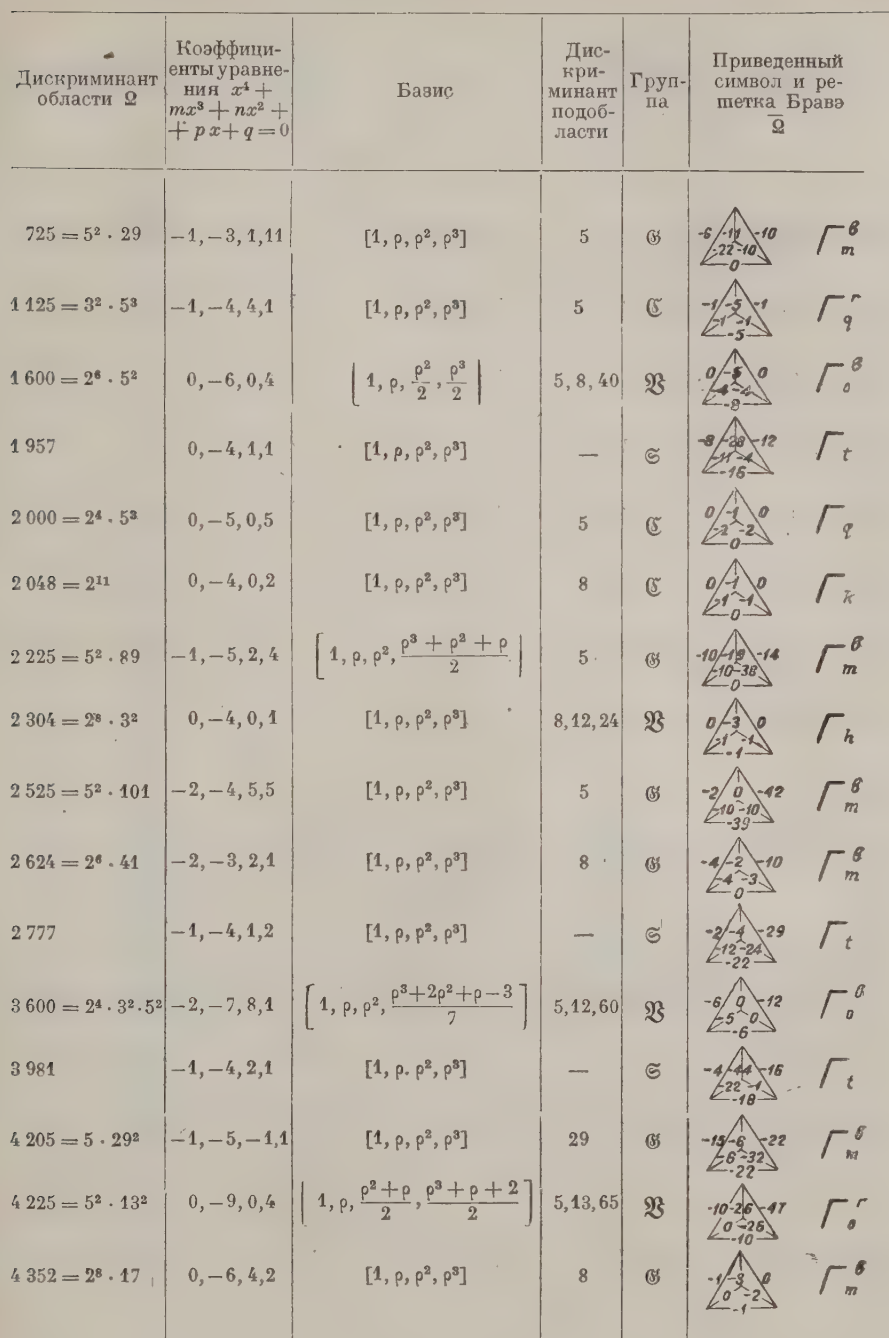 Дискриминант области Ω | Коэффици-енты уравне-ния x⁴ + mx³ + nx² + + p x + q = 0 | Базис | Дис-кри-минант подоб-ласти | Груп-па | Приведенный символ и ре-шетка Бравэ Ω̅
725 = 5² · 29 | −1, −3, 1, 11 | [1, ρ, ρ², ρ³] | 5 | 𝔊 | -6 -11 -10 -22 -10 0 | Γ в m
1 125 = 3² · 5³ | −1, −4, 4, 1 | [1, ρ, ρ², ρ³] | 5 | ℭ | -1 -5 -1 -1 -1 -5 | Γ r q
1 600 = 2⁶ · 5² | 0, −6, 0, 4 | [1, ρ, ρ²/2, ρ³/2] | 5, 8, 40 | 𝔙 | 0 -5 0 -4 -4 -8 | Γ в o
1 957 | 0, −4, 1, 1 | [1, ρ, ρ², ρ³] | — | 𝔖 | -8 -28 -12 -11 -4 -16 | Γ t
2 000 = 2⁴ · 5³ | 0, −5, 0, 5 | [1, ρ, ρ², ρ³] | 5 | ℭ | 0 -1 0 -2 -2 0 | Γ q
2 048 = 2¹¹ | 0, −4, 0, 2 | [1, ρ, ρ², ρ³] | 8 | ℭ | 0 -1 0 -1 -1 0 | Γ k
2 225 = 5² · 89 | −1, −5, 2, 4 | [1, ρ, ρ², (ρ³ + ρ² + ρ)/2] | 5 | 𝔊 | -10 -19 -14 -10 -38 0 | Γ в m
2 304 = 2⁸ · 3² | 0, −4, 0, 1 | [1, ρ, ρ², ρ³] | 8, 12, 24 | 𝔙 | 0 -3 0 -1 -1 -1 | Γ h
2 525 = 5² · 101 | −2, −4, 5, 5 | [1, ρ, ρ², ρ³] | 5 | 𝔊 | -2 0 -42 -10 -10 -39 | Γ в m
2 624 = 2⁶ · 41 | −2, −3, 2, 1 | [1, ρ, ρ², ρ³] | 8 | 𝔊 | -4 -2 -10 -4 -3 0 | Γ в m
2 777 | −1, −4, 1, 2 | [1, ρ, ρ², ρ³] | — | 𝔖 | -2 -4 -29 -12 -24 -22 | Γ t
3 600 = 2⁴ · 3² · 5² | −2, −7, 8, 1 | [1, ρ, ρ², (ρ³+2ρ²+ρ−3)/7] | 5, 12, 60 | 𝔙 | -6 0 -12 -5 0 -6 | Γ в o
3 981 | −1, −4, 2, 1 | [1, ρ. ρ², ρ³] | — | 𝔖 | -4 -44 -16 -22 -1 -18 | Γ t
4 205 = 5 · 29² | −1, −5, −1, 1 | [1, ρ, ρ², ρ³] | 29 | 𝔊 | -15 -6 -22 -6 -32 -22 | Γ в m
4 225 = 5² · 13² | 0, −9, 0, 4 | [1, ρ, (ρ² + ρ)/2, (ρ³ + ρ + 2)/2] | 5, 13, 65 | 𝔙 | -10 -26 -47 0 -26 -10 | Γ r o
4 352 = 2⁸ · 17 | 0, −6, 4, 2 | [1, ρ, ρ², ρ³] | 8 | 𝔊 | -1 -3 0 0 -2 -1 | Γ в m